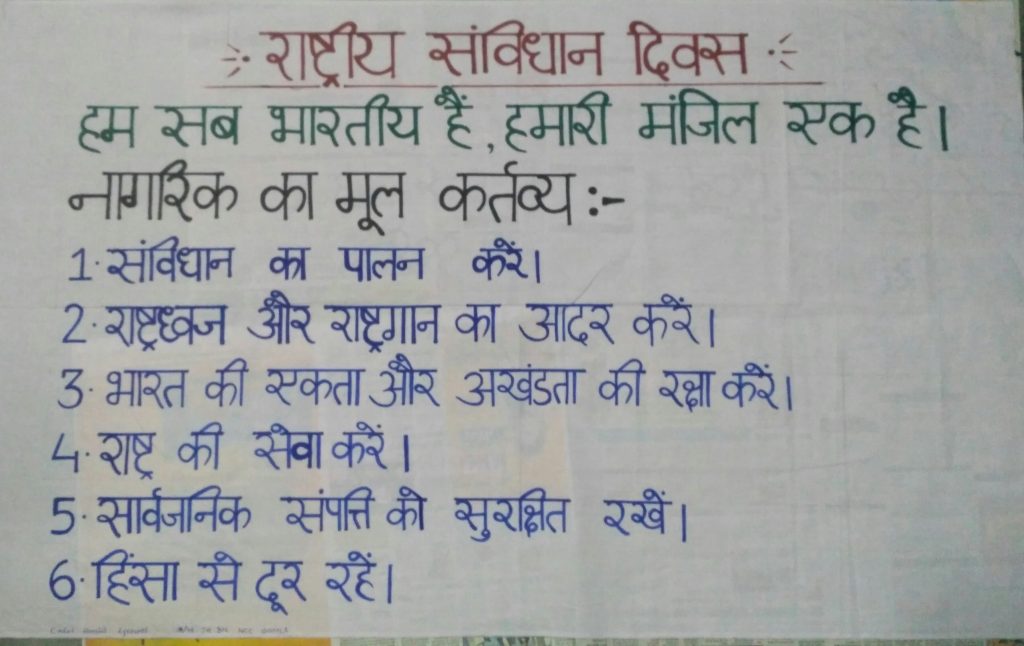 राष्ट्रीय संविधान दिवस
हम सब भारतीय हैं, हमारी मंजिल एक है।
नागरिक का मूल कर्तव्य :-
1. संविधान का पालन करें।
2. राष्ट्रध्वज और राष्ट्रगान का आदर करें।
3. भारत की एकता और अखंडता की रक्षा करें।
4. राष्ट्र की सेवा करें।
5. सार्वजनिक संपत्ति को सुरक्षित रखें।
6. हिंसा से दूर रहें।